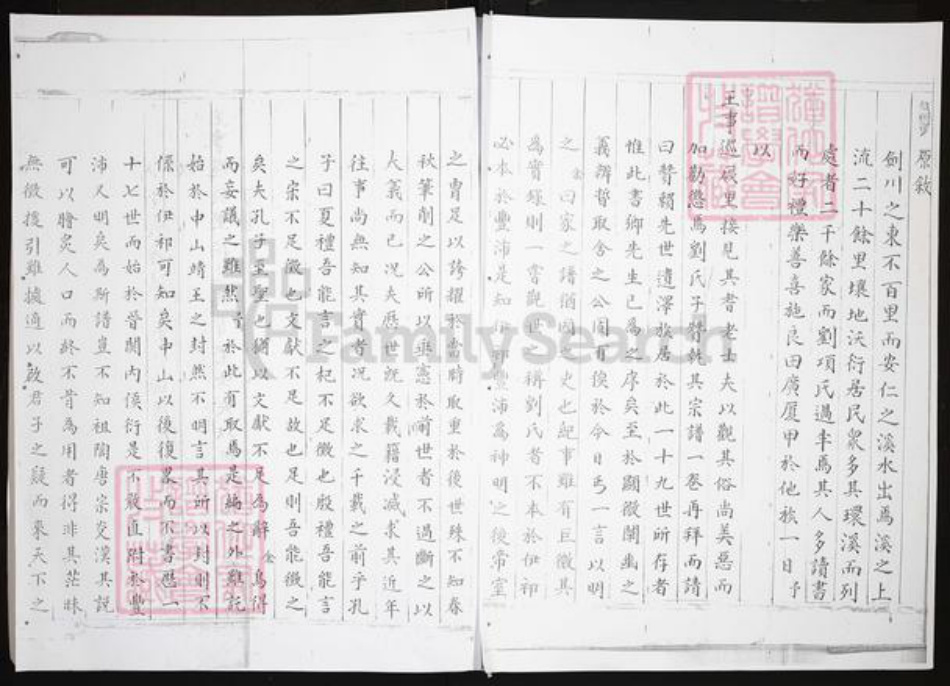 原敘
劍川之東不百里而安仁之溪水出焉溪之上
流二十餘里壤地沃衍居民眾多其環溪而列
處者二千餘家而劉項氏過半焉其人多讀書
而好禮樂善喜施良田廣厦甲於他族一日予
以
王事巡厥里接見其耆老士夫以觀其俗尚美惡而
加勸懲焉劉氏子 執其宗譜一卷再拜而請
曰賛賴先世遺澤族居於此一十九世所存者
惟此書鄉先生已為之序矣至於顯微闡幽之
義辨晢取舍之公固有俟於今日丐一言以明
之 曰家之譜猶國之史也紀事雖有巨微其
為實錄則一嘗觀世稱劉氏者不本於伊祁
必本於豐沛是知伊祁豐沛為神明之後帝室
之胄足以誇耀於當時取重於後世殊不知春
秋筆削之公所以垂憲於前世者不過斷之以
大義而已况夫歷世既久載籍浸减求其近年
往事尚無知其實者况欲求之千載之前乎孔
子曰夏禮吾能言之杞不足徵也殷禮吾能言
之宋不足徵也文獻不足故也足則吾能徵之
矣夫孔子至聖也猶以文獻不足為辭 烏得
而妄議之雖然予於此有取焉是編之外雖託
始於中山靖王之封然不明言其所以封則不
係於伊祁可知矣中山以後復畧而不書歷一
十七世而始於晉關內侯衍是不敢直附於豐
沛又明矣為斯譜豈不知祖陶唐宗炎漢其説
可以膾炙人口而終不肯為用者得非其茫昧
無徵援引難據適以啟君子之疑而來天下之
FamilySearch